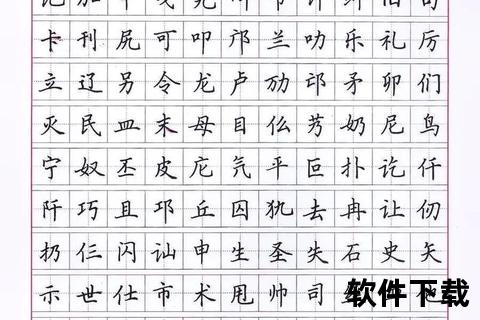 卡刊尻可叩邝兰叻乐礼厉
立辽另令龙卢劢邙矛卯们
灭民皿末母目仫艿奶尼鸟
宁奴丕皮庀氕平叵扑讫仟
阡巧且邛丘囚犰去冉让仞
扔仨闪讪申生圣失石史矢
示世仕市术甩帅司
软件下载